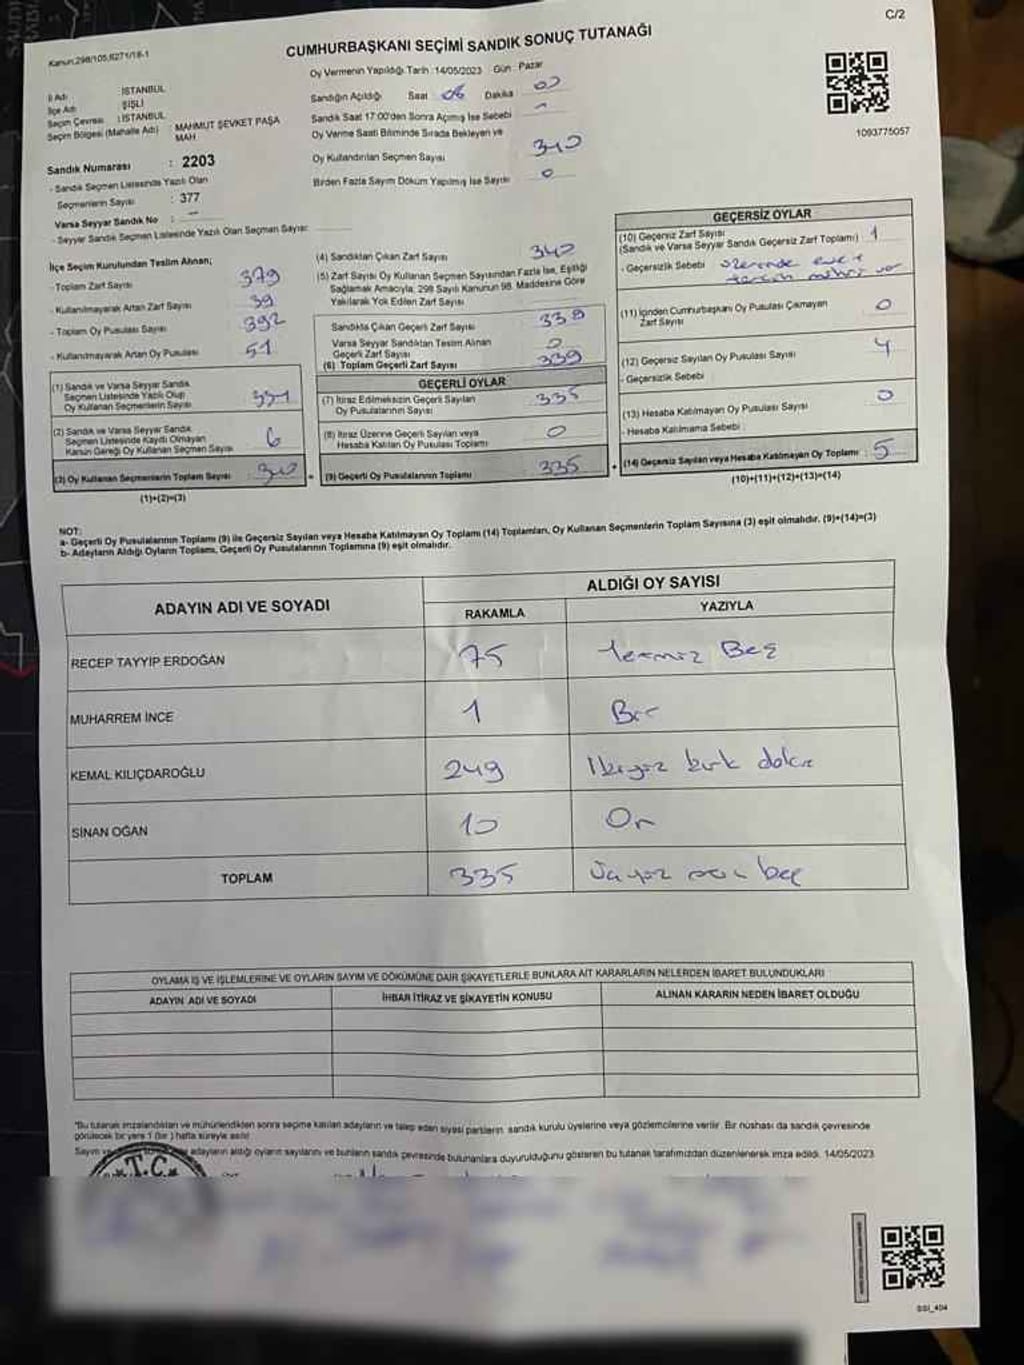 C/2
Kanun:298/105,6271/18-1
CUMHURBAŞKANI SEÇİMİ SANDIK SONUÇ TUTANAĞI
İl Adı : İSTANBUL
İlçe Adı : ŞİŞLİ
Seçim Çevresi : İSTANBUL
Seçim Bölgesi (Mahalle Adı) : MAHMUT ŞEVKET PAŞA MAH
Sandık Numarası : 2203
- Sandık Seçmen Listesinde Yazılı Olan
Seçmenlerin Sayısı : 377
Varsa Seyyar Sandık No :
- Seyyar Sandık Seçmen Listesinde Yazılı Olan Seçmen Sayısı:
Oy Vermenin Yapıldığı Tarih :14/05/2023 Gün : Pazar
Sandığın Açıldığı Saat 08 Dakika 00
Sandık Saat 17:00'den Sonra Açılmış İse Sebebi
Oy Verme Saati Bitiminde Sırada Bekleyen ve
Oy Kullandırılan Seçmen Sayısı 340
Birden Fazla Sayım Döküm Yapılmış İse Sayısı 0
1093775057
İlçe Seçim Kurulundan Teslim Alınan;
- Toplam Zarf Sayısı 379
- Kullanılmayarak Artan Zarf Sayısı 39
- Toplam Oy Pusulası Sayısı 392
- Kullanılmayarak Artan Oy Pusulası 51
(1) Sandık ve Varsa Seyyar Sandık
Seçmen Listesinde Yazılı Olup
Oy Kullanan Seçmenlerin Sayısı
(2) Sandık ve Varsa Seyyar Sandık
Seçmen Listesinde Kaydı Olmayan
Kanun Gereği Oy Kullanan Seçmen Sayısı 6
(3) Oy Kullanan Seçmenlerin Toplam Sayısı 340
(1)+(2)=(3)
(4) Sandıktan Çıkan Zarf Sayısı 340
(5) Zarf Sayısı Oy Kullanan Seçmen Sayısından Fazla İse, Eşitliği
Sağlamak Amacıyla, 298 Sayılı Kanunun 98. Maddesine Göre
Yakılarak Yok Edilen Zarf Sayısı
Sandıkta Çıkan Geçerli Zarf Sayısı 339
Varsa Seyyar Sandıktan Teslim Alınan
Geçerli Zarf Sayısı 0
(6) Toplam Geçerli Zarf Sayısı 339
GEÇERLİ OYLAR
(7) İtiraz Edilmeksizin Geçerli Sayılan
Oy Pusulalarının Sayısı 335
(8) İtiraz Üzerine Geçerli Sayılan veya
Hesaba Katılan Oy Pusulası Toplamı 0
(9) Geçerli Oy Pusulalarının Toplamı 335
GEÇERSİZ OYLAR
(10) Geçersiz Zarf Sayısı
(Sandık ve Varsa Seyyar Sandık Geçersiz Zarf Toplamı) 1
- Geçersizlik Sebebi üzerinde evet
tercih mührü var
(11) İçinden Cumhurbaşkanı Oy Pusulası Çıkmayan
Zarf Sayısı 0
(12) Geçersiz Sayılan Oy Pusulası Sayısı 4
- Geçersizlik Sebebi
(13) Hesaba Katılmayan Oy Pusulası Sayısı 0
- Hesaba Katılmama Sebebi :
(14) Geçersiz Sayılan veya Hesaba Katılmayan Oy Toplamı : 5
(10)+(11)+(12)+(13)=(14)
NOT:
a- Geçerli Oy Pusulalarının Toplamı (9) ile Geçersiz Sayılan veya Hesaba Katılmayan Oy Toplamı (14) Toplamları, Oy Kullanan Seçmenlerin Toplam Sayısına (3) eşit olmalıdır. (9)+(14)=(3)
b- Adayların Aldığı Oyların Toplamı, Geçerli Oy Pusulalarının Toplamına (9) eşit olmalıdır.
ADAYIN ADI VE SOYADI
ALDIĞI OY SAYISI
RAKAMLA YAZIYLA
RECEP TAYYİP ERDOĞAN 75 Yetmiş Beş
MUHARREM İNCE 1 Bir
KEMAL KILIÇDAROĞLU 249 İkiyüz kırk dokuz
SİNAN OĞAN 10 On
TOPLAM 335 Üçyüz otuz beş
OYLAMA İŞ VE İŞLEMLERİNE VE OYLARIN SAYIM VE DÖKÜMÜNE DAİR ŞİKAYETLERLE BUNLARA AİT KARARLARIN NELERDEN İBARET BULUNDUKLARI
ADAYIN ADI VE SOYADI İHBAR İTİRAZ VE ŞİKAYETİN KONUSU ALINAN KARARIN NEDEN İBARET OLDUĞU
*Bu tutanak imzalandıktan ve mühürlendikten sonra seçime katılan adayların ve talep eden siyasi partilerin sandık kurulu üyelerine veya gözlemcilerine verilir. Bir nüshası da sandık çevresinde
görülecek bir yere 1 (bir) hafta süreyle asılır.
Sayım ve adayların aldığı oyların sayılarını ve bunların sandık çevresinde bulunanlara duyurulduğunu gösteren bu tutanak tarafımızdan düzenlenerek imza edildi. 14/05/2023
T.C.
SSI_404